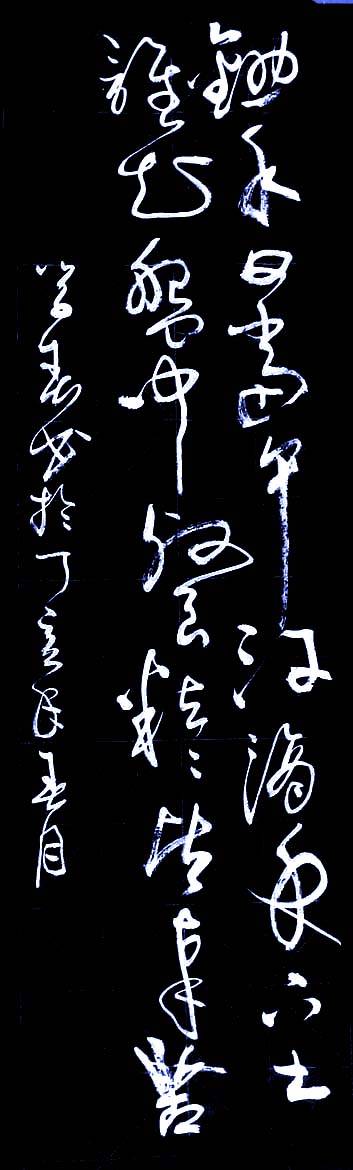 鋤禾日當午汗滴禾下土
誰知盤中餐粒々皆辛苦
書於丁亥年月